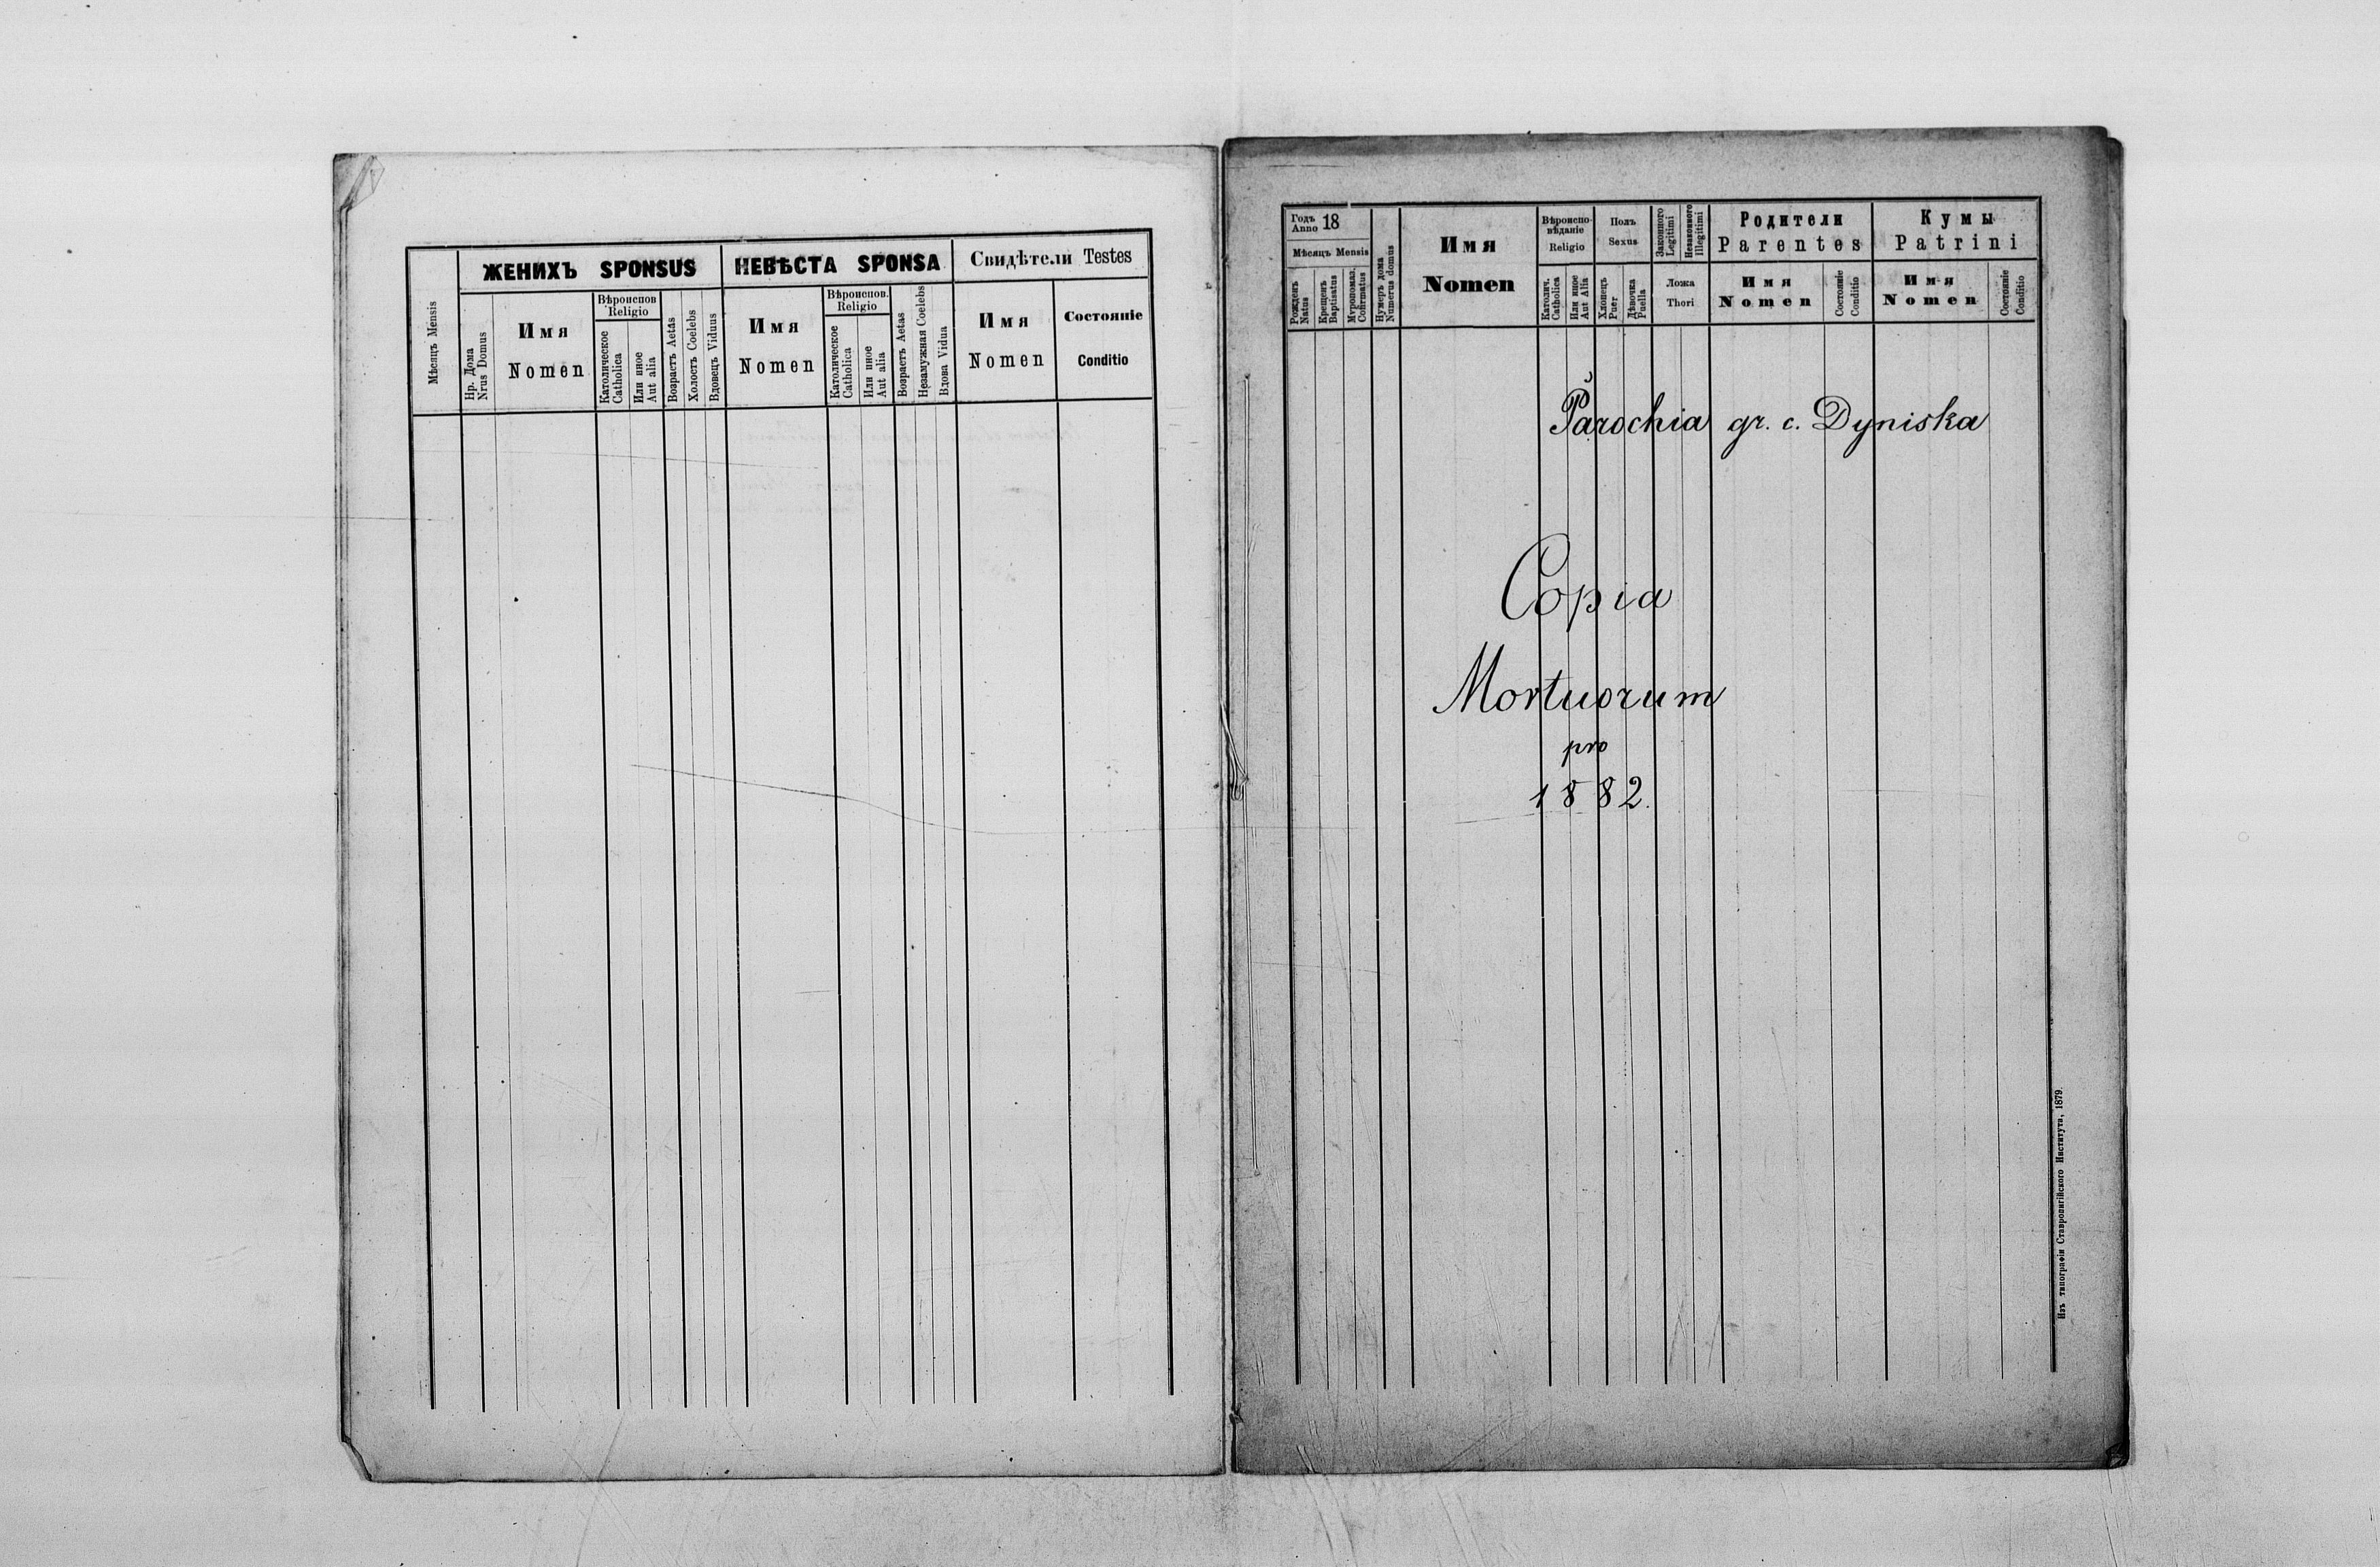 ЖЕНИХЪ SPONSUS
НЕВѢСТА SPONSA
Свидѣтели Testes
Мѣсяцъ Mensis
Нр. Дома
Nrus Domus
Имя
Nomen
Вѣроиспов
Religio
Католическое
Catholica
Или иное
Aut alia
Возрастъ Aetas
Холостъ Coelebs
Вдовецъ Viduus
Имя
Nomen
Вѣроиспов.
Religio
Католическое
Catholica
Или иное
Aut alia
Возрастъ Aetas
Незамужная Coelebs
Вдова Vidua
Имя
Nomen
Состояніе
Conditio
Годъ
Anno 18
Мѣсяцъ Mensis
Рожденъ
Natus
Крещенъ
Baptisatus
Муропомаз.
Cofirmatus
Нумеръ дома
Numerus domus
Имя
Nomen
Вѣроиспо-
вѣданіе
Religio
Католич.
Catholica
Или иное
Aut Alia
Полъ
Sexus
Хлопецъ
Puer
Дѣвочка
Puella
Законного
Legitimi
Незаконного
Illegitimi
Ложа
Thori
Родители
Parentes
Имя
Nomen
Состояніе
Conditio
Кумы
Patrini
Имя
Nomen
Состояніе
Conditio
Parochia gr. c. Dyniska
Copia
Mortuorum
pro
1882.
Изъ типографіи Ставропигійского Института, 1879.